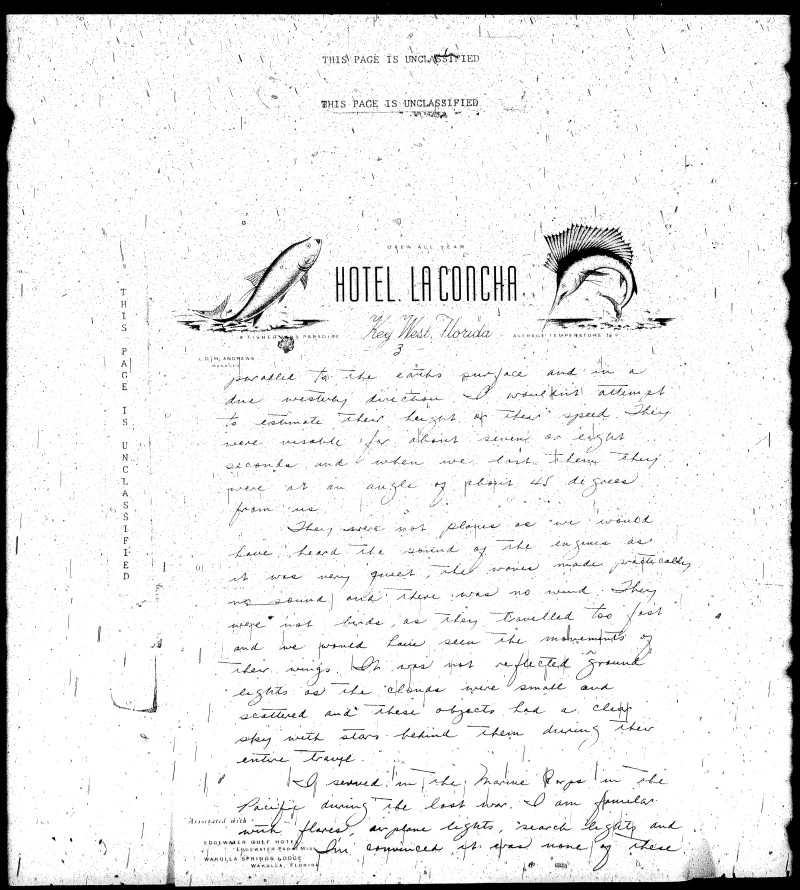 THIS PAGE IS UNCLASSIFIED
THIS PAGE IS UNCLASSIFIED
OPEN ALL YEAR
HOTEL LA CONCHA
Key West, Florida
A FISHERMANS PARADISE
AVERAGE TEMPERATURE 76°
3
ANDREWS
MANAGER
THIS PAGE IS UNCLASSIFIED
parallel to the earths surface and in a
due westerly direction. I wouldnt attempt
to estimate their height or their speed. They
were visable for about seven or eight
seconds and when we lost them they
were at an angle of about 45 degrees
from us.
They were not planes as we would
have heard the sound of the engines as
it was very quiet, the waves made practically
no sound and there was no wind. They
were not birds as they travelled too fast
and we would have seen the movements of
their wings. It was not reflected ground
lights as the clouds were small and
scattered and these objects had a clear
sky with stars behind them during their
entire travel.
I served in the Marine Corps in the
Pacific during the last war. I am familar
with flares, airplane lights, search lights and
I'm convinced it was none of these
Associated with
EDGEWATER GULF HOTEL
EDGEWATER PARK, MISS.
WAKULLA SPRINGS LODGE
WAKULLA, FLORIDA